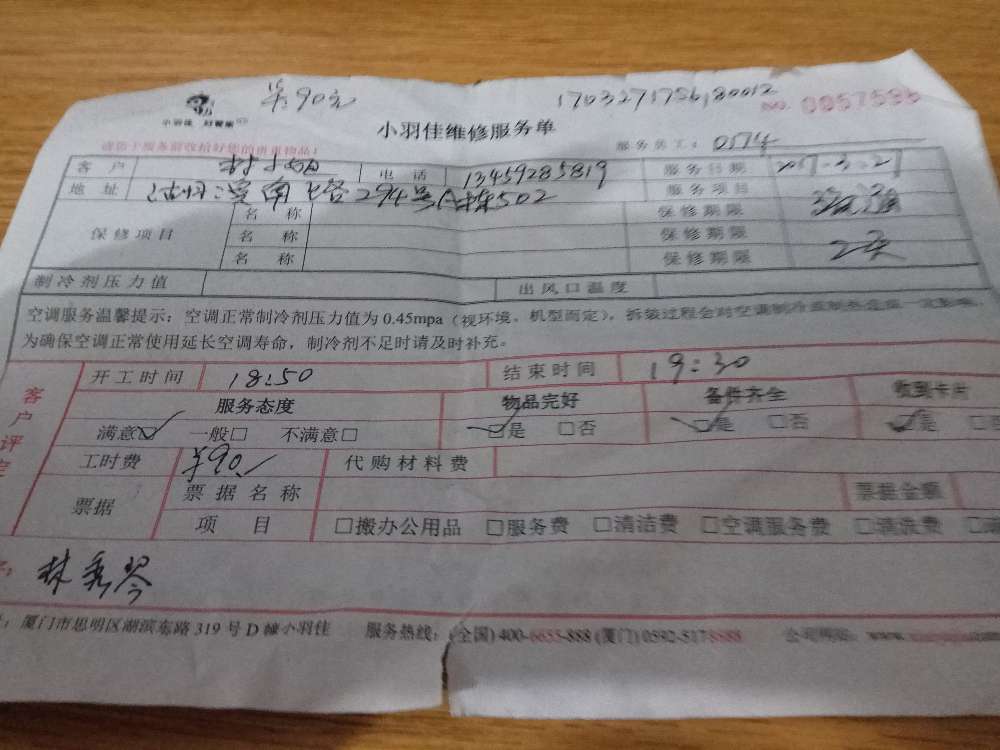 米90元
1703271756180012
小羽佳 好管家
NO. 0057585
小羽佳维修服务单
请您于服务前收拾好您的贵重物品!
服务员工: 0574
客户 林小姐 电话 13459285819 服务日期 2017-3-27
地址 294号 502 服务项目
保修项目 名称 保修期限
名称 保修期限
名称 保修期限 2天
制冷剂压力值 出风口温度
空调服务温馨提示:空调正常制冷剂压力值为 0.45mpa(视环境、机型而定),拆装过程会对空调制冷
为确保空调正常使用延长空调寿命,制冷剂不足时请及时补充。
客户评定
开工时间 18:50 结束时间 19:30
服务态度 物品完好 备件齐全 收到卡片
满意☑ 一般□ 不满意□ ☑是 □否 ☑是 □否 ☑是
工时费 ¥90./ 代购材料费
票据 票据名称 票据金额
项目 □搬办公用品 □服务费 □清洁费 □空调服务费 □清洗费
林秀琴
:厦门市思明区湖滨东路 319 号 D 幢小羽佳 服务热线:(全国) 400-6655-888 (厦门) 0592-5178888 公司网站: www.